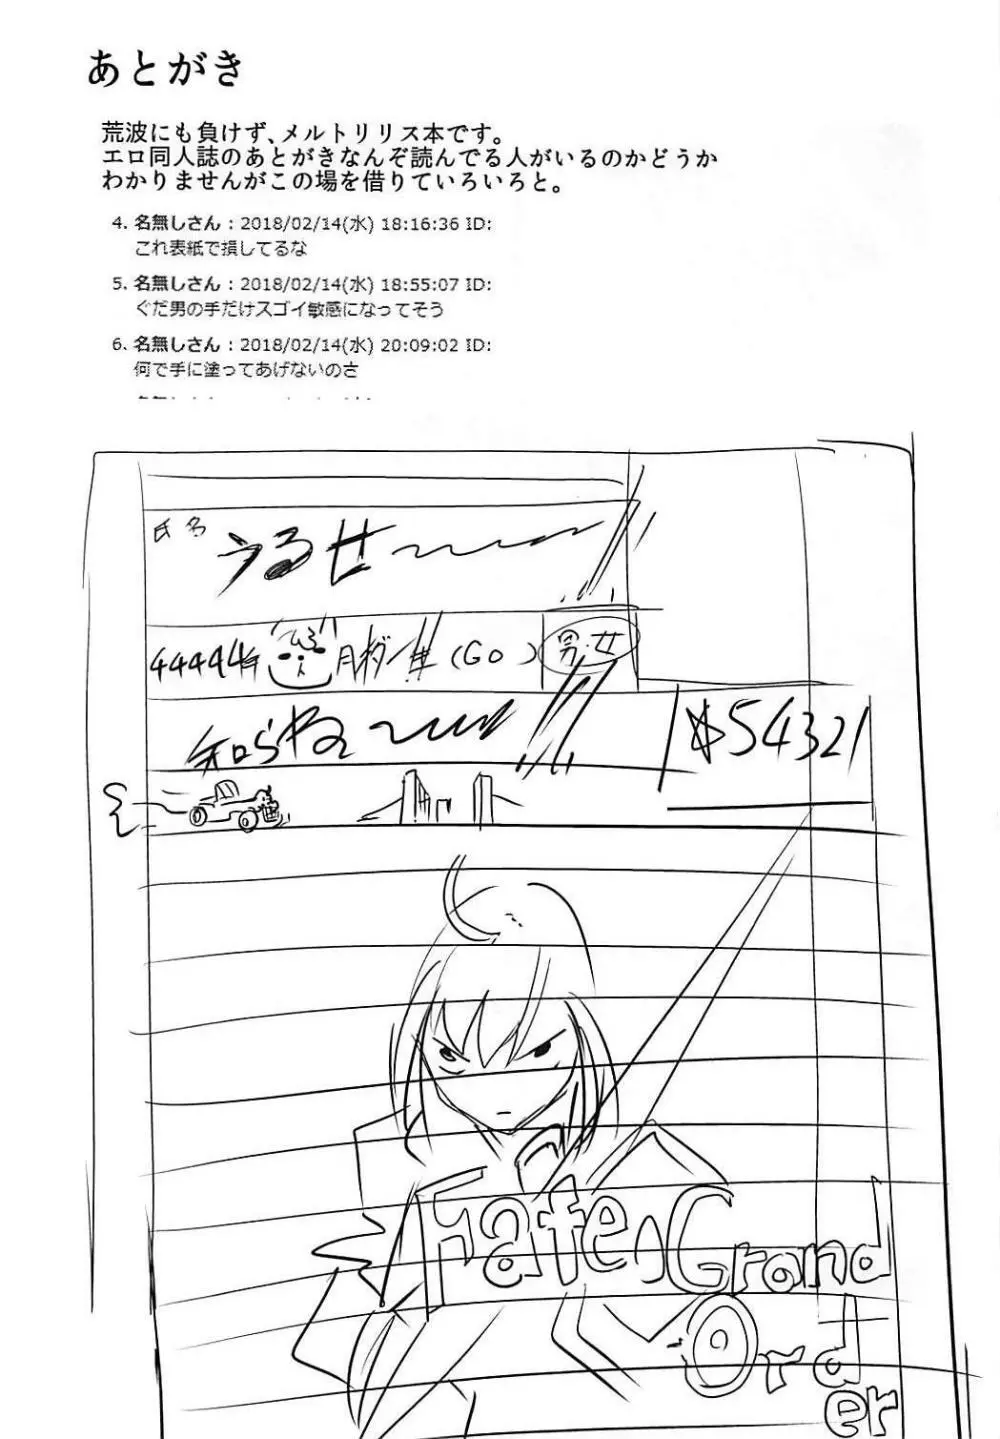 あとがき
荒波にも負けず、メルトリリス本です。
エロ同人誌のあとがきなんぞ読んでる人がいるのかどうか
わかりませんがこの場を借りていろいろと。
4. 名無しさん : 2018/02/14(水) 18:16:36 ID:
これ表紙で損してるな
5. 名無しさん : 2018/02/14(水) 18:55:07 ID:
ぐだ男の手だけスゴイ敏感になってそう
6. 名無しさん : 2018/02/14(水) 20:09:02 ID:
何で手に塗ってあげないのさ
氏名
うるせ〜
44444年 月 (GO) 男・女
知らね〜
54321
Fate/Grand
Order